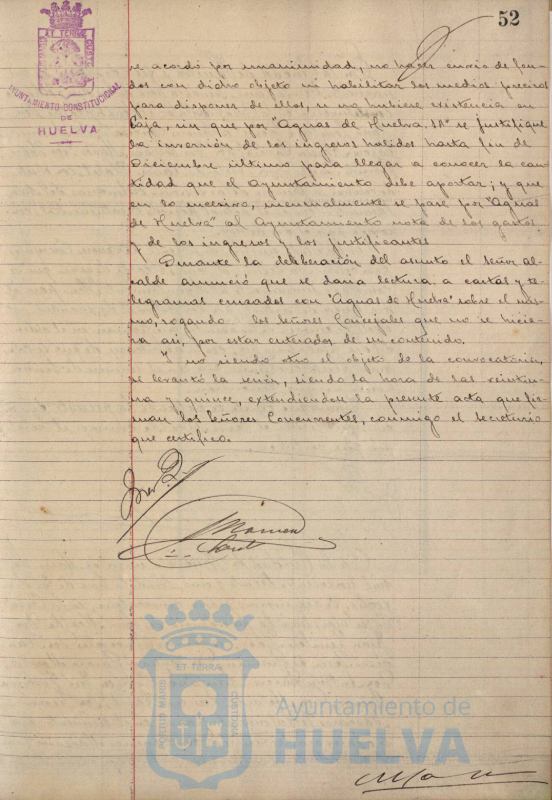 52
PORTUS MARIS ET TERRAE CUSTODIA
AYUNTAMIENTO CONSTITUCIONAL
DE
HUELVA
se acordó por unanimidad, no hacer envio de fon-
dos con dicho objeto ni habilitar los medios precisos
para disponer de ellos, si no hubiese existencia en
Caja, sin que por "Aguas de Huelva SA" se justifique
la inversión de los ingresos habidos hasta fin de
Diciembre último para llegar a conocer la can-
tidad que el Ayuntamiento debe aportar; y que
en lo sucesivo, mensualmente se pase por "Aguas
de Huelva" al Ayuntamiento nota de los gastos
y de los ingresos y los justificantes
Durante la deliberación del asunto el Señor Al-
calde anunció que se daria lectura a cartas y te-
legramas cruzados con "Aguas de Huelva" sobre el mis-
mo, rogando los Señores Concejales que no se hicie-
ra asi, por estar enterados de su contenido.
Y no siendo otro el objeto de la convocatoria,
se levantó la sesión, siendo la hora de las veintiu-
na y quince, extendiendose la presente acta que fir-
man los Señores Concurrentes, conmigo el Secretario
que certifico.
PORTUS MARIS ET TERRAE CUSTODIA
Ayuntamiento de
HUELVA